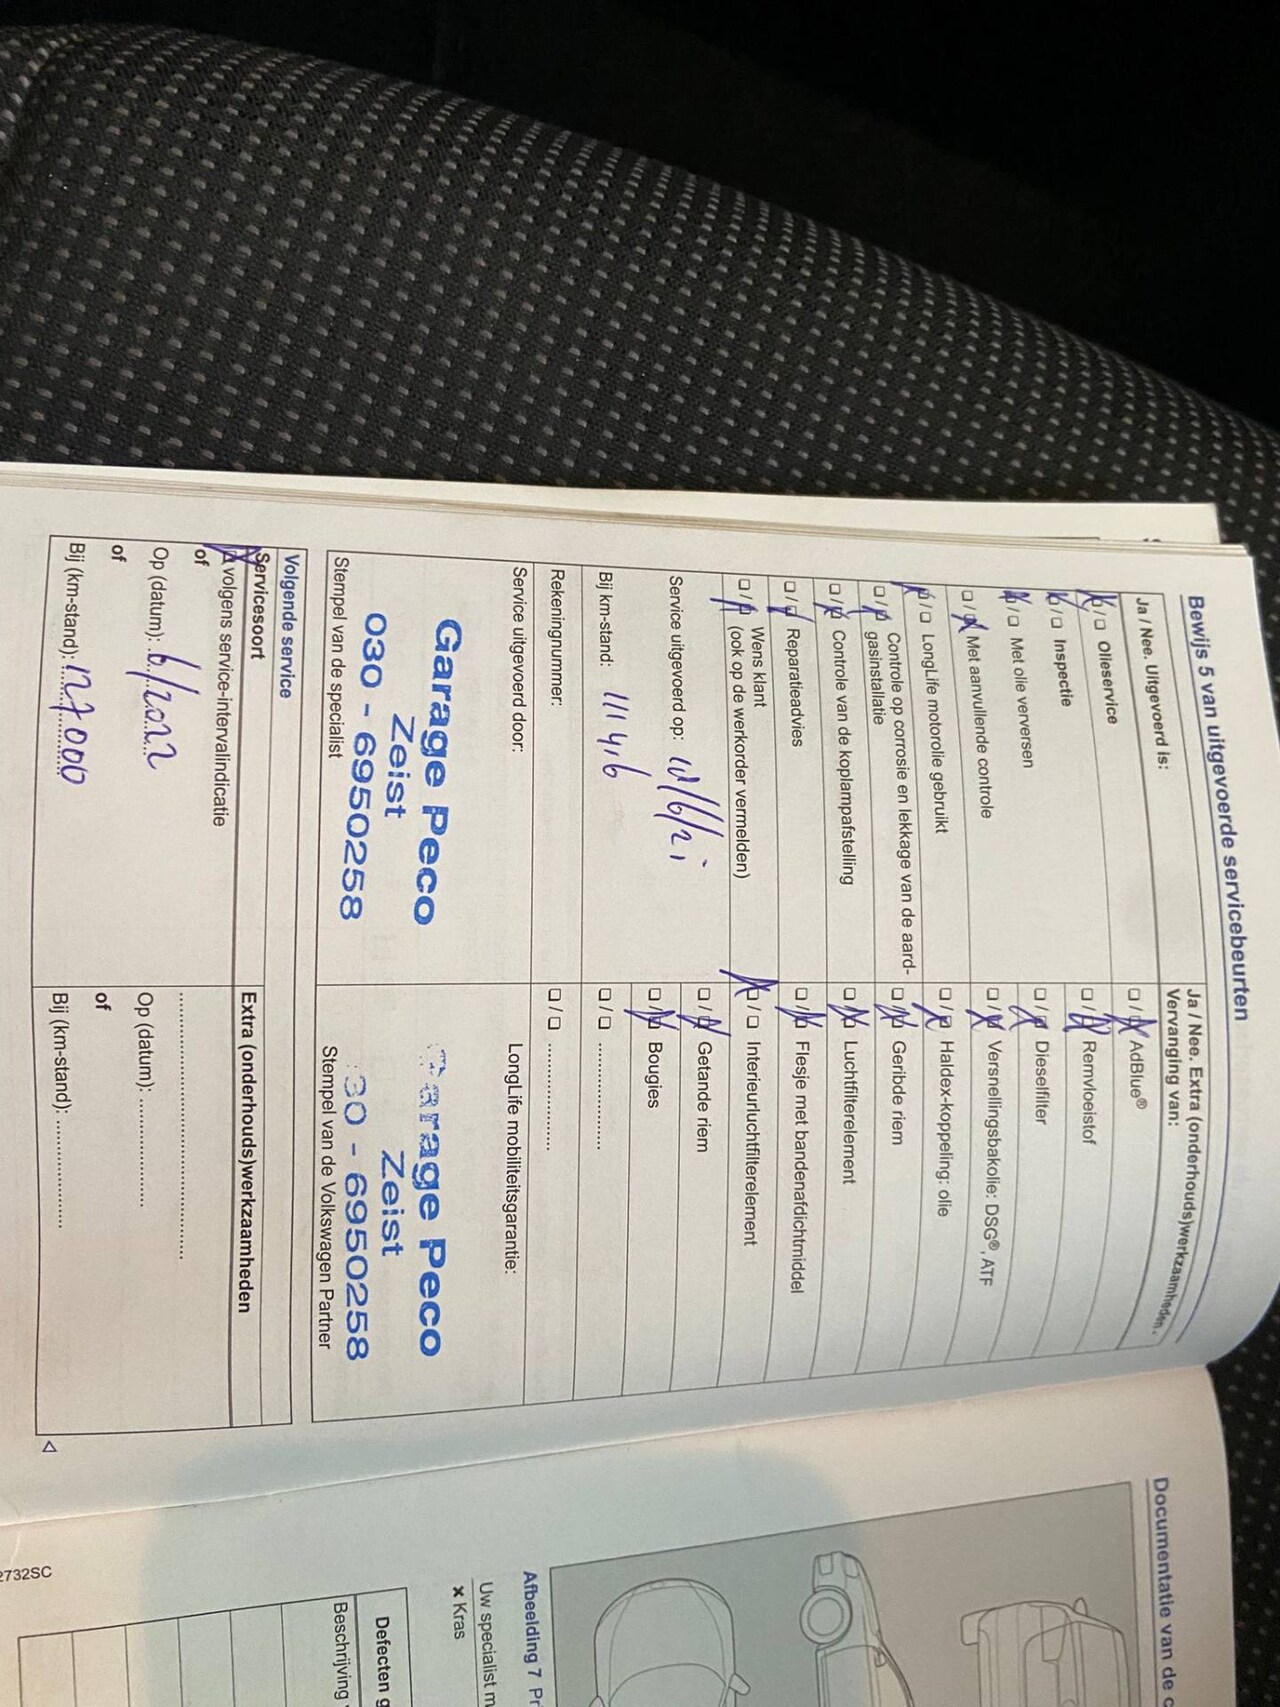 Bewijs 5 van uitgevoerde servicebeurten
Ja / Nee. Uitgevoerd is:
Olieservice
Inspectie
Met olie verversen
Met aanvullende controle
LongLife motorolie gebruikt
Controle op corrosie en lekkage van de aard-
gasinstallatie
Controle van de koplampafstelling
Reparatieadvies
Wens klant
(ook op de werkorder vermelden)
Service uitgevoerd op:
Bij km-stand: 111 416
Rekeningnummer:
Service uitgevoerd door:
Garage Peco
Zeist
030 - 6950258
Stempel van de specialist
Ja / Nee. Extra (onderhouds)werkzaamheden.
Vervanging van:
AdBlue®
Remvloeistof
Dieselfilter
Versnellingsbakolie: DSG®, ATF
Haldex-koppeling: olie
Geribde riem
Luchtfilterelement
Flesje met bandenafdichtmiddel
Interieurluchtfilterelement
Getande riem
Bougies
LongLife mobiliteitsgarantie:
Garage Peco
Zeist
30 - 6950258
Stempel van de Volkswagen Partner
Volgende service
Servicesoort
volgens service-intervalindicatie
of
Op (datum): 6/2022
of
Bij (km-stand): 127000
Extra (onderhouds)werkzaamheden
Op (datum):
of
Bij (km-stand):
Documentatie van de c
Afbeelding 7 Pr
Uw specialist m
× Kras
Defecten g
Beschrijving
2732SC